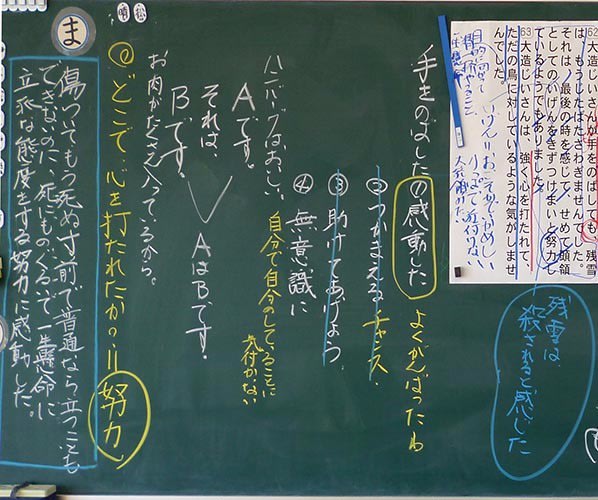 62
大造じいさんが手をのばしても、残雪
は、もうじたばたさわぎませんでした。
それは、最後の時を感じて、せめて頭領
としてのいげんをきずつけまいと努力し
ているようでもありました。
63
大造じいさんは、強く心を打たれて、
ただの鳥に対しているような気がしませ
んでした。
残雪は
殺されると感じた
手をのばした
①感動した
よくがんばったね
②つかまえる
チャンス
③助けてあげよう
④無意識に
自分で自分のしていることに
気付かない
ハンバーグはおいしい。
Aです。
それは、
Bです。
AはBです。
お肉がたくさん入っているから。
①どこで、心を打たれたか?=努力
ま
傷ついてもう死ぬ寸前で普通なら立つことも
できないのに、死にものぐるいで一生懸命に
立派な態度をする努力に感動した。